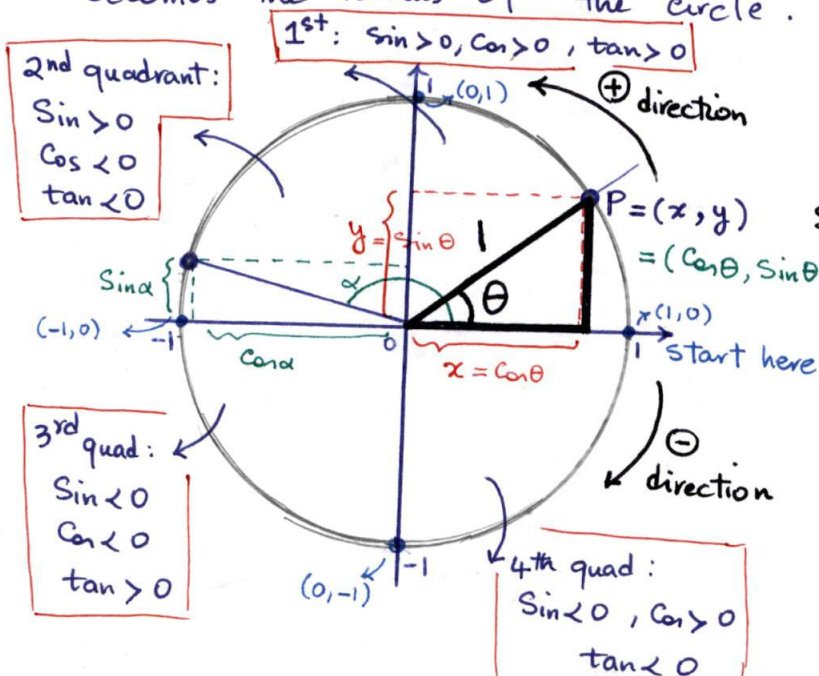 the circle.
1st: Sin>0, Cos>0, tan>0
2nd quadrant:
Sin>0
Cos<0
tan<0
1
(0,1)
⊕ direction
P=(x,y)
=(Cosθ, Sinθ
y=Sinθ
1
θ
α
Sinα
(-1,0)
-1
Cosα
0
x=Cosθ
(1,0)
1
start here
⊖
direction
3rd quad:
Sin<0
Cos<0
tan>0
-1
(0,-1)
4th quad:
Sin<0, Cos>0
tan<0